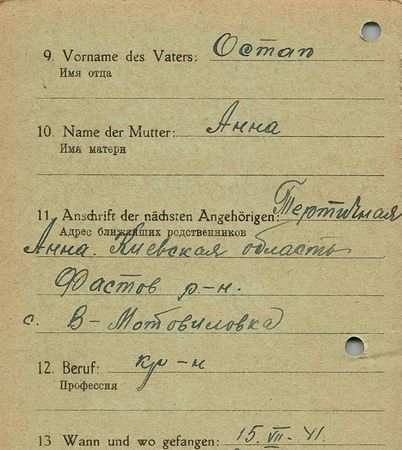 9. Vorname des Vaters: Остап
Имя отца
10. Name der Mutter: Анна
Имя матери
11. Anschrift der nächsten Angehörigen: Тертичная
Адрес ближайших родственников
Анна. Киевская область
Фастов р-н.
с. В-Мотовиловка
12. Beruf: кр-н
Профессия
13 Wann und wo gefangen: 15. VII - 41